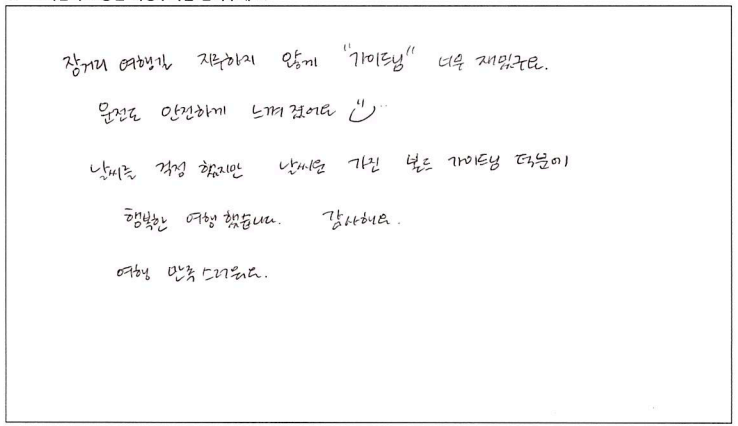 장거리 여행길 지루하지 않게 "가이드님" 너무 재밌구요.
운전도 안전하게 느껴졌어요
날씨를 걱정 했지만 날씨운 가진 가이드님 덕분에
행복한 여행 했습니다. 감사해요.
여행 만족스러워요.